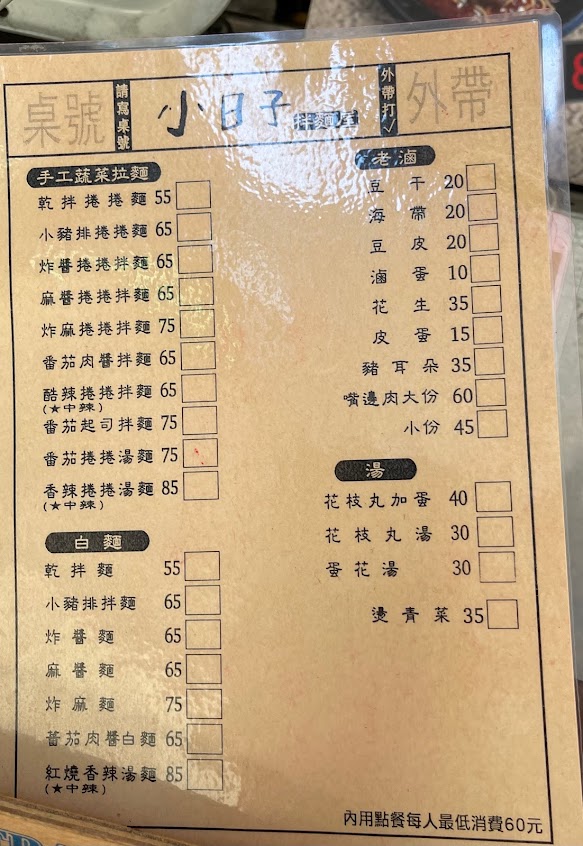 桌號
請寫桌號
小日子 拌麵屋
外帶打✓
外帶
手工蔬菜拉麵
乾拌捲捲麵 55
小豬排捲捲麵 65
炸醬捲捲拌麵 65
麻醬捲捲拌麵 65
炸麻捲捲拌麵 75
番茄肉醬拌麵 65
酷辣捲捲拌麵 65
(★中辣)
番茄起司拌麵 75
番茄捲捲湯麵 75
香辣捲捲湯麵 85
(★中辣)
白麵
乾拌麵 55
小豬排拌麵 65
炸醬麵 65
麻醬麵 65
炸麻麵 75
蕃茄肉醬白麵 65
紅燒香辣湯麵 85
(★中辣)
老滷
豆干 20
海帶 20
豆皮 20
滷蛋 10
花生 35
皮蛋 15
豬耳朵 35
嘴邊肉大份 60
小份 45
湯
花枝丸加蛋 40
花枝丸湯 30
蛋花湯 30
燙青菜 35
內用點餐每人最低消費60元